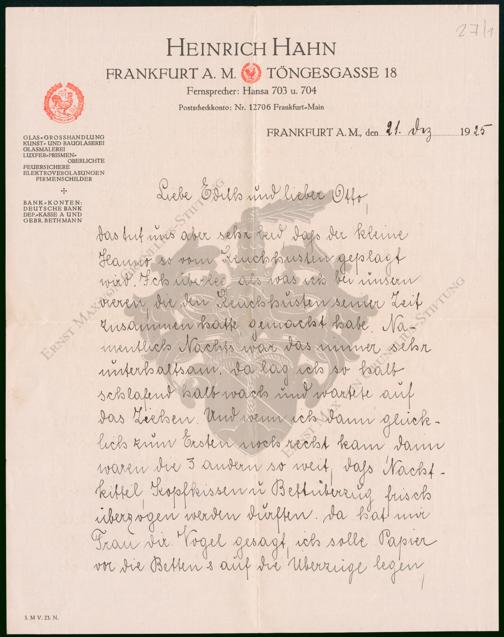 27/1
HEINRICH HAHN
FRANKFURT A. M. TÖNGESGASSE 18
Fernsprecher: Hansa 703 u. 704
Postscheckkonto: Nr. 12706 Frankfurt-Main
FRANKFURT A. M., den 21. Dez 1925
GLAS-GROSSHANDLUNG
KUNST- UND BAUGLASEREI
GLASMALEREI
LUXFER-PRISMEN-
OBERLICHTE
FEUERSICHERE
ELEKTROVERGLASUNGEN
FIRMENSCHILDER
BANK-KONTEN:
DEUTSCHE BANK
DEP.-KASSE A UND
GEBR. BETHMANN
Liebe Edith und lieber Otto,
das tut uns aber sehr leid daß der kleine
Hanno so vom Keuchhusten geplagt
wird. Ich überleg als was ich bei unsern
vieren die den Keuchhusten seiner Zeit
zusammen hatte gemacht habe. Na-
mentlich Nachts war das immer sehr
unterhaltsam. Da lag ich so halb
schlafend halb wach und wartete auf
das Ziehen. Und wenn ich dann glück-
lich zum Ersten noch recht kam dann
waren die 3 andern so weit, daß Nacht-
kittel Kopfkissen u Bettüberzug frisch
überzogen werden durften. Da hat mir
Frau Dir Vogel gesagt, ich solle Papier
vor die Betten & auf die Überzüge legen,
3. M V. 23. N.
ERNST MAX VON GRUNELIUS-STIFTUNG
ERNST MAX VON GRUNELIUS-STIFTUNG